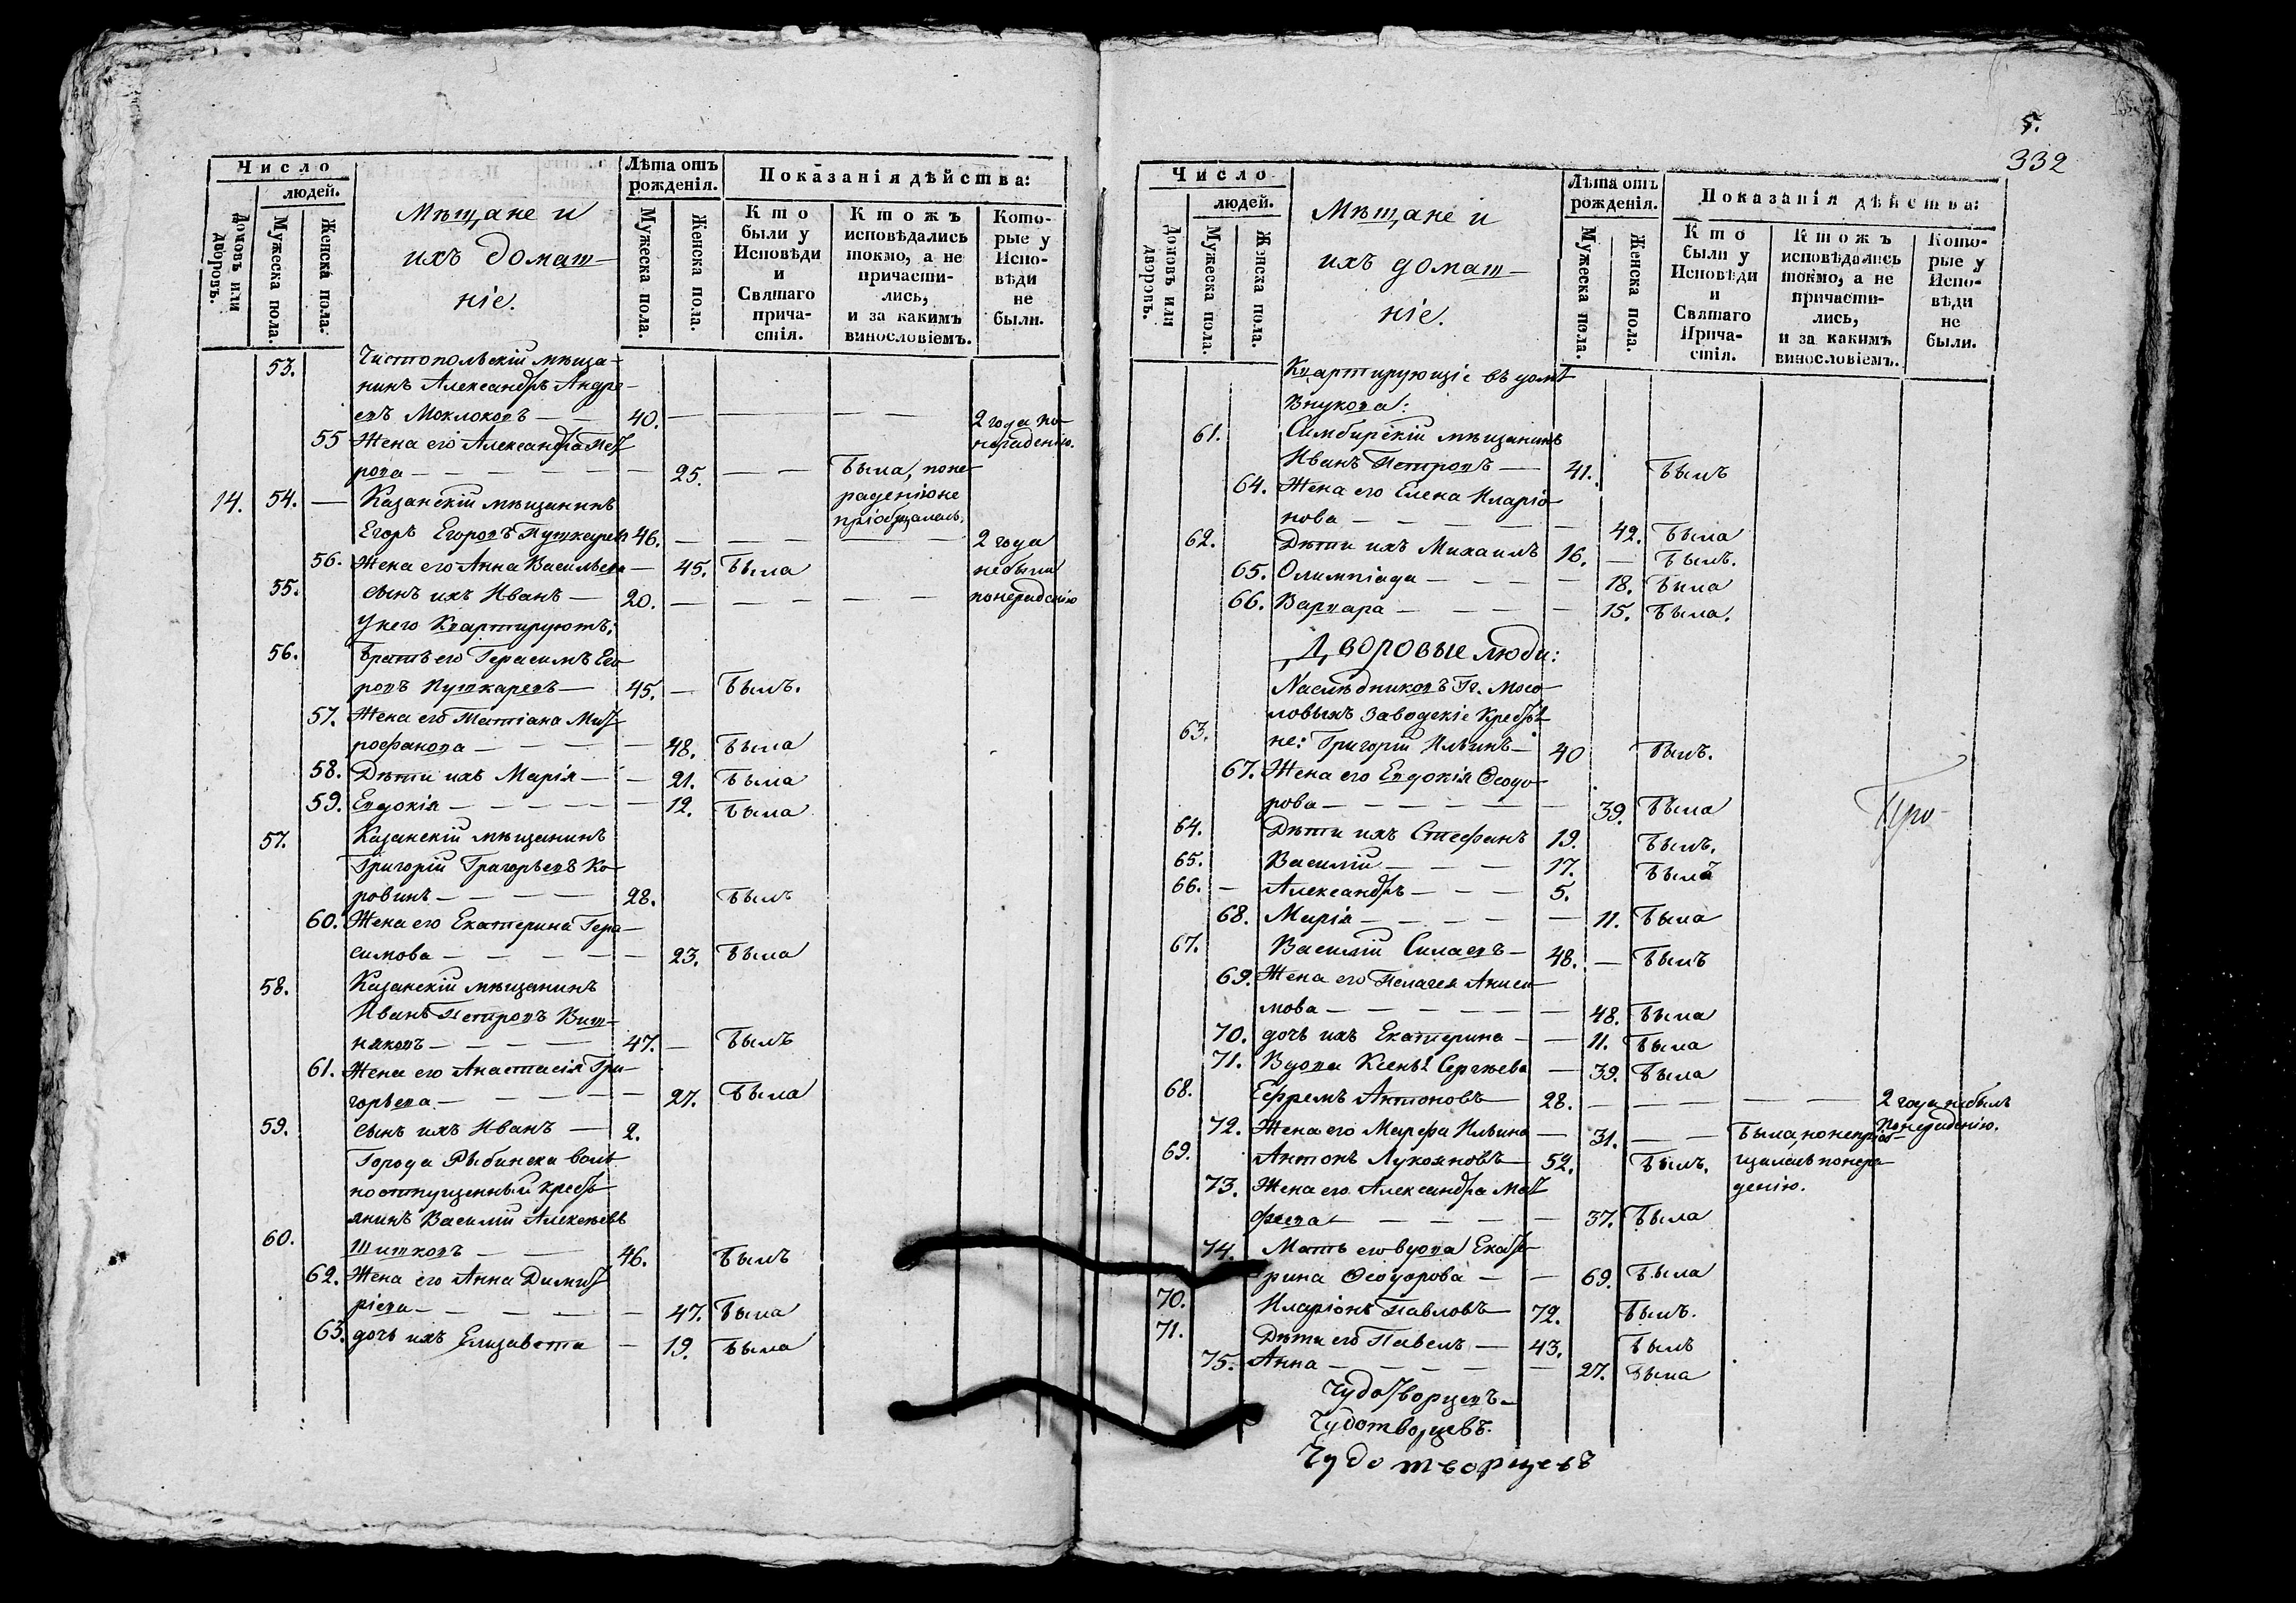 Число
людей.
Домовъ или дворовъ.
Мужеска пола.
Женска пола.
Мѣщане и
ихъ домаш-
ніе.
Лѣта отъ рожденія.
Мужеска пола.
Женска пола.
Показанія дѣйства:
Кто были у Исповѣди и Святаго прича-стія.
Ктожъ исповѣдались токмо, а не причасти-лись, и за какимъ винословіемъ.
Кото-рые у Испо-вѣди не были.
53. Чистопольскій мѣща-
нинъ Александръ Андре-
евъ Моклоковъ — 40. — — — — 2 года по
55 Жена его Александра Пет нерадению.
рова — — — — — 25. — — Была, поне-
14. 54. — Казанскій мѣщанинъ радению не
Егоръ Егоровъ Пушкаревъ 46. — — пріобщалась. 2 года
56. Жена его Анна Васильева — 45. Была небыли
55. сынъ ихъ Иванъ — 20. — — — — — понерадению
У него Квартируютъ:
56. братъ его Герасимъ Его-
ровъ Пушкаревъ — 45. — Былъ.
57. Жена его Татіана Мит
рофанова — — — — 48. Была
58. Дѣти ихъ Марія — — 21. Была
59. Евдокія — — — — — 12. Была
57. Казанскій мѣщанинъ
Григорій Григорьевъ Ко-
ровинъ — — — 28. Былъ
60. Жена его Екатерина Гера-
симова — — — — 23. Была
58. Казанскій мѣщанинъ
Иванъ Петровъ Виш-
няковъ — — — 47. — Былъ
61. Жена его Анастасія Гри-
горьева — — — — 27. Была
59. сынъ ихъ Иванъ — 2.
Города Рыбинска воль
ноотпущенный Кресть
янинъ Василій Алексѣевъ
60. Шишковъ — — 46. Былъ
62. Жена его Анна Димит
ріева — — — — 47. Была
63. дочь ихъ Елизавета — 19. Была
5.
332
Число
людей.
Домовъ или дворовъ.
Мужеска пола.
Женска пола.
Мѣщане и
ихъ домаш-
ніе.
Лѣта отъ рожденія.
Мужеска пола.
Женска пола.
Показанія дѣйства:
Кто были у Исповѣди и Святаго Прича-стія.
Ктожъ исповѣдались токмо, а не причасти-лись, и за какимъ винословіемъ.
Кото-рые у Испо-вѣди не были.
Квартирующіе въ домѣ
Внукова:
61. Симбирскій мѣщанинъ
Иванъ Петровъ — 41. Былъ
64. Жена его Елена Иларіо-
нова — — — — — 42. Была
62. Дѣти ихъ Михаилъ 16. — Былъ.
65. Олимпіада — — — — 18. Была
66. Варвара — — — — 15. Была.
Дворовые люди:
Наслѣдниковъ Гг. Мосо-
ловыхъ Заводскіе Крестья
63. не: Григорій Ильинъ — 40 Былъ.
67. Жена его Евдокія Ѳеодо-
рова — — — — — — 39. Была
64. Дѣти ихъ Стефанъ 19. Былъ.
65. Василій — — — 17. Былъ
66. — Александръ — — — 5.
68. Марія — — — — — 11. Была
67. Василій Силаевъ — 48. — Былъ
69. Жена его Пелагея Аниси-
мова — — — — — — 48. Была
70. дочь ихъ Екатерина — — 11. Была
71. Вдова Ксенія Сергѣева — 39. Была
68. Ефремъ Антоновъ — 28. — — — — — 2 года небылъ
72. Жена его Марфа Ильина — 31. — — Была, но непріоб- Понерадѣнію.
69. Антонъ Лукояновъ — 52. Былъ. щалась понера-
73. Жена его Александра Мат дѣнію.
феева — — — — — 37. Была
74. Мать его вдова Екате-
рина Ѳеодорова — — 69. Была
70. Иларіонъ Павловъ — 72. Былъ.
71. Дѣти его Павелъ — 43. Былъ
75. Анна — — — — — 27. Была
Про-
Чудотворцевъ.
Чудотворцевъ.
Чудотворцевъ